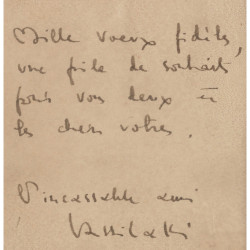 Mille voeux fidèles,
une pile de souhaits
pour vous deux et
les chers vôtres.
L'incassable ami
Vassilakis